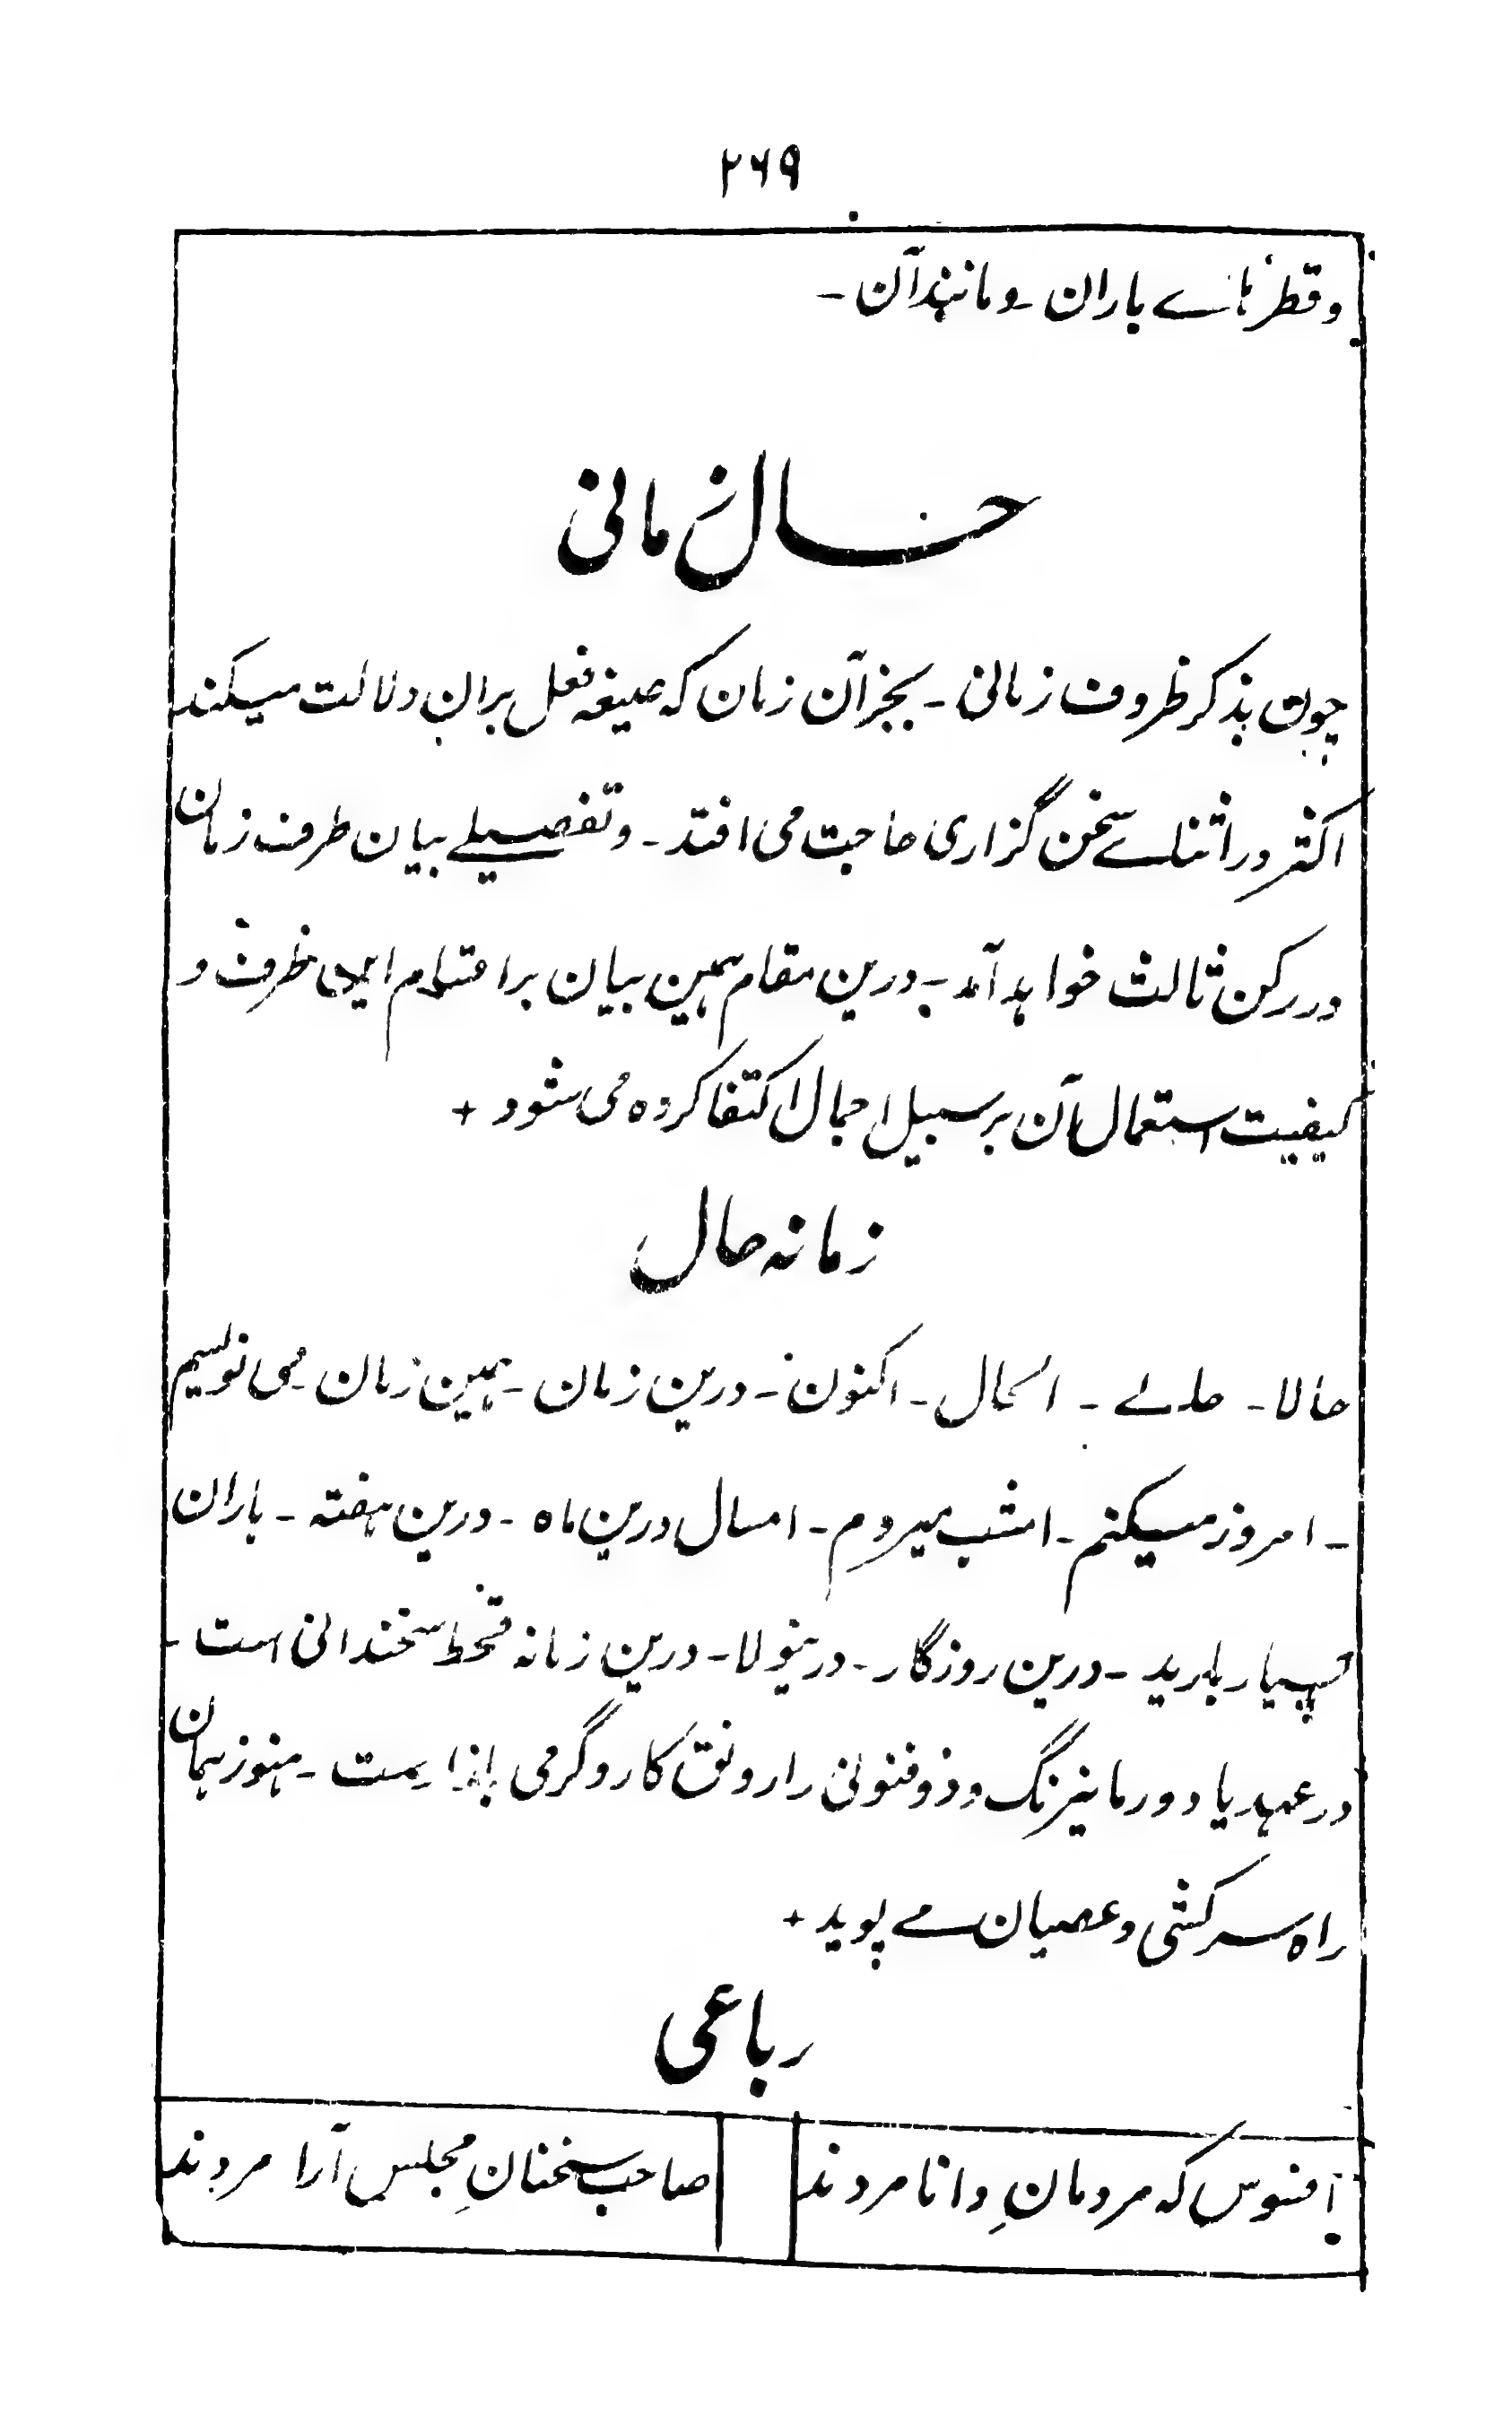 ۲۶۹
و قطره‌ہاے باران ـ و مانند آن ـ
حال زمانی
چون بذکر ظروف زمانی ـ بجز آن زمان کہ صیغہ فعل بران دلالت میکند
اکثر در اثناے سخن گزاری حاجت می افتد ـ و تفصیلے بیان ظرف زمان
در رکن ثالث خواہد آمد ـ درین مقام ہمین بیان بر اقسام این ظرف و
کیفیت استعمال آن بر سبیل اجمال اکتفا کردہ می شود +
زمانہ حال
حالا ـ حالے ـ الحال ـ اکنون ـ درین زمان ـ ہمین زمان ـ می نویسم
ـ امروز میکنم ـ امشب میروم ـ امسال درین ماہ ـ درین ہفتہ ـ باران
بسیار بارید ـ درین روزگار ـ درینولا ـ درین زمانہ قحط سخندانی است ـ
در عہد یا دور ما نیرنگ و ذوفنونی را رونق کار و گرمی بازار است ـ ہنوز ہمان
راہ سرکشی و عصیان مے پوید +
رباعی
افسوس کہ مردمانِ دانا مردند صاحب سخنانِ مجلس آرا مردند